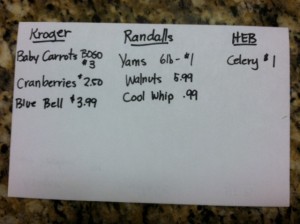 Kroger
Baby Carrots BOGO
$3
Cranberries $2.50
Blue Bell $3.99
Randalls
Yams 6lb - $1
Walnuts 5.99
Cool Whip .99
HEB
Celery $1